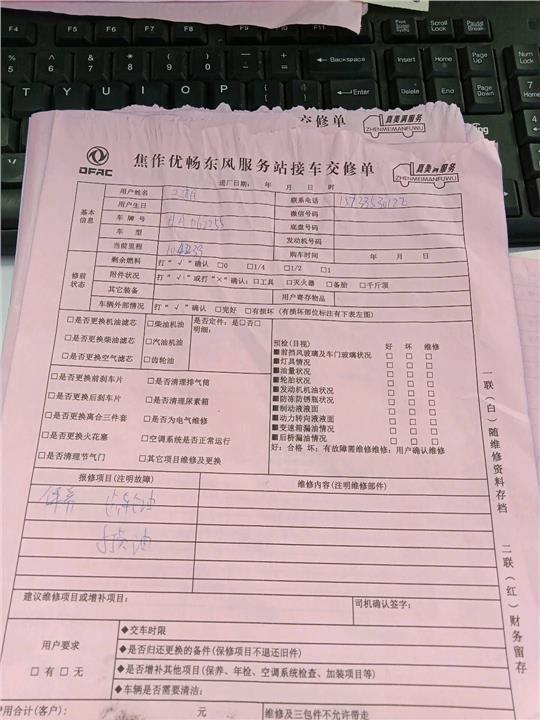 Print Screen SysRq
Scroll Lock
Pause Break
Backspace
Insert
Home
Page Up
Num Lock
Enter
Delete
End
Page
5 6 7 8 9 0
T Y U I O P
交修单
真美满服务
ZHENMEIMANFUWU
DFAC
焦作优畅东风服务站接车交修单
真美满服务
ZHENMEIMANFUWU
送厂日期: 年 月 日 时
基本信息
用户姓名
联系电话
用户生日
微信号码
车牌号
底盘号码
车 型
发动机号码
当前里程
购车时间 年 月 日
修前状态
剩余燃料 打“√”确认 □0 □1/4 □1/2 □1
附件状况 打“√”或打“×”确认:□工具 □灭火器 □备胎 □千斤顶
其它装备
用户寄存物品
车辆外部情况 打“√”确认 □完好 □有损坏(有损坏部位标注有下表左图)
□是否更换机油滤芯 □柴油机油
是否定件:是□否□
明细:
□是否更换柴油滤芯 □汽油机油
□是否更换空气滤芯 □齿轮油
□是否更换前刹车片 □是否清理排气筒
□是否更换后刹车片 □是否清理尿素箱
□是否更换离合三件套 □是否为电气维修
□是否更换火花塞 □空调系统是否正常运行
□是否清理节气门 □其它项目维修及更换
预检(目视) 好 坏 维修
■前挡风玻璃及车门玻璃状况 □ □ □
■灯具情况 □ □ □
■油量状况 □ □ □
■轮胎状况 □ □ □
■发动机机油状况 □ □ □
■防冻防锈瓶状况 □ □ □
■制动液液面 □ □ □
■动力转向液液面 □ □ □
■变速箱漏油情况 □ □ □
■后桥漏油情况 □ □ □
好:合格 坏:有故障需维修维修:用户确认维修
报修项目(注明故障)
维修内容(注明维修部件)
保养
换油
建议维修项目或增补项目:
司机确认签字:
用户要求
□有 □无
◆交车时限
◆是否归还更换的备件(保修项目不退还旧件)
◆是否增补其他项目(保养、年检、空调系统检查、加装项目等)
◆车辆是否需要清洁:
费用合计(客户): 元
维修及三包件不允许带走
一联(白)随维修资料存档
二联(红)财务留存